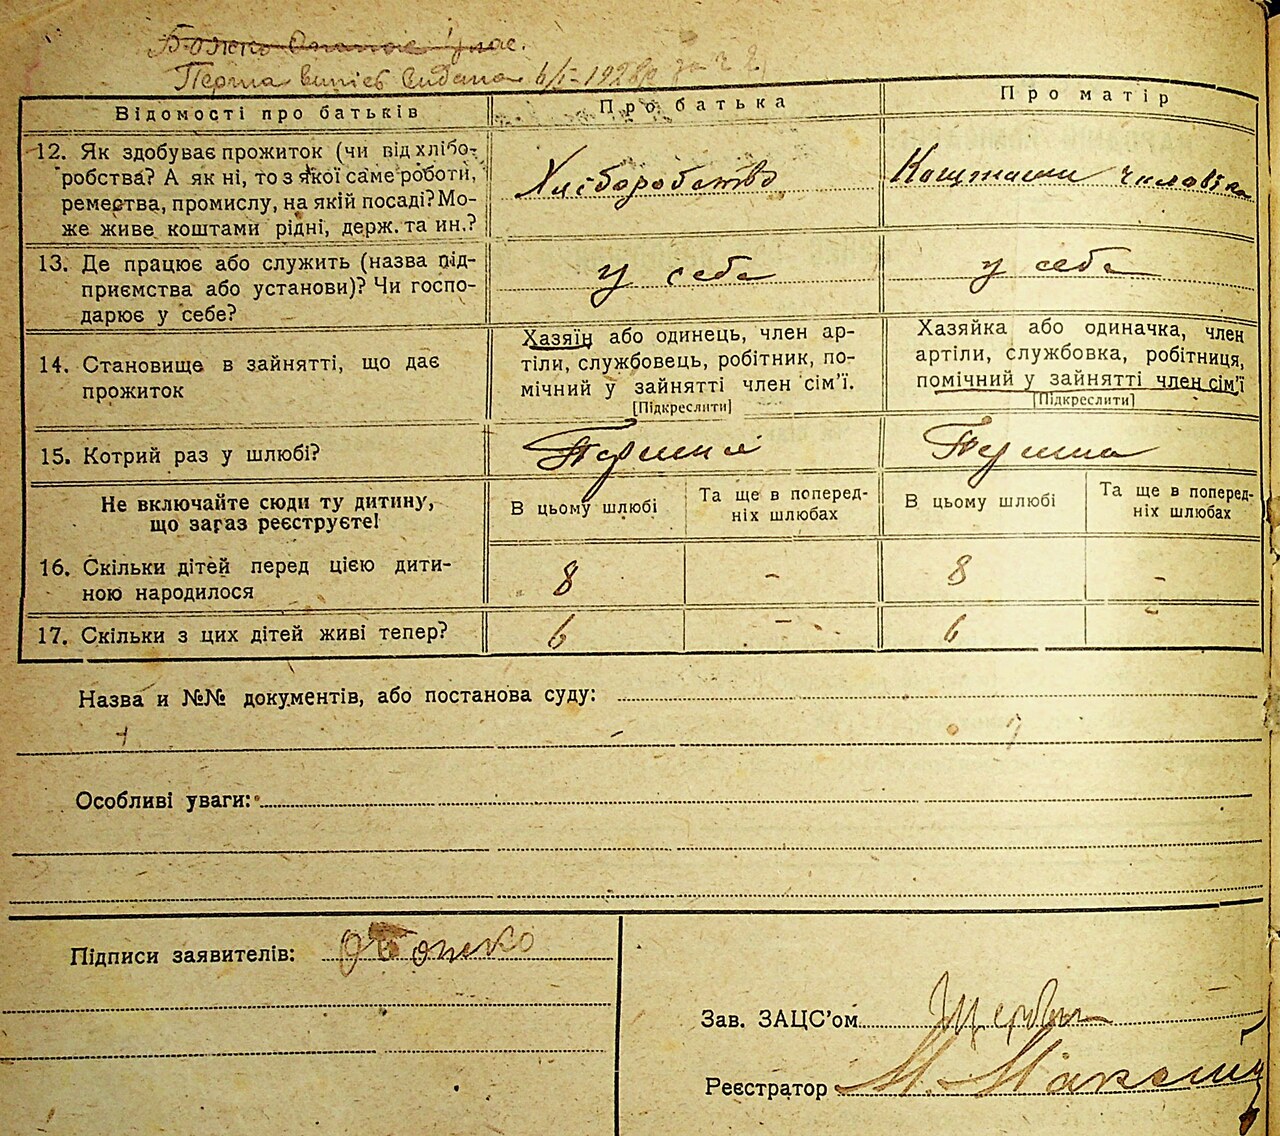 Божко Опанас
Перша випись видана 6/I-1928р за ч 2
Відомості про батьків
Про батька
Про матір
12. Як здобуває прожиток (чи від хлібо-
робства? А як ні, то з якої саме роботи,
ремества, промислу, на якій посаді? Мо-
же живе коштами рідні, держ. та ин.?
Хліборобство
Коштами чиловіка
13. Де працює або служить (назва під-
приємства або установи)? Чи госпо-
дарює у себе?
у себе
у себе
14. Становище в зайнятті, що дає
прожиток
Хазяїн або одинець, член ар-
тіли, службовець, робітник, по-
мічний у зайнятті член сім'ї.
[Підкреслити]
Хазяйка або одиначка, член
артіли, службовка, робітниця,
помічний у зайнятті член сім'ї
[Підкреслити]
15. Котрий раз у шлюбі?
Перший
Перша
Не включайте сюди ту дитину,
що зараз реєструєте!
В цьому шлюбі
Та ще в поперед-
ніх шлюбах
В цьому шлюбі
Та ще в поперед-
ніх шлюбах
16. Скільки дітей перед цією дити-
ною народилося
8
-
8
-
17. Скільки з цих дітей живі тепер?
6
-
6
-
Назва и №№ документів, або постанова суду:
Особливі уваги:
Підписи заявителів: О Божко
Зав. ЗАЦС'ом
Реєстратор М.